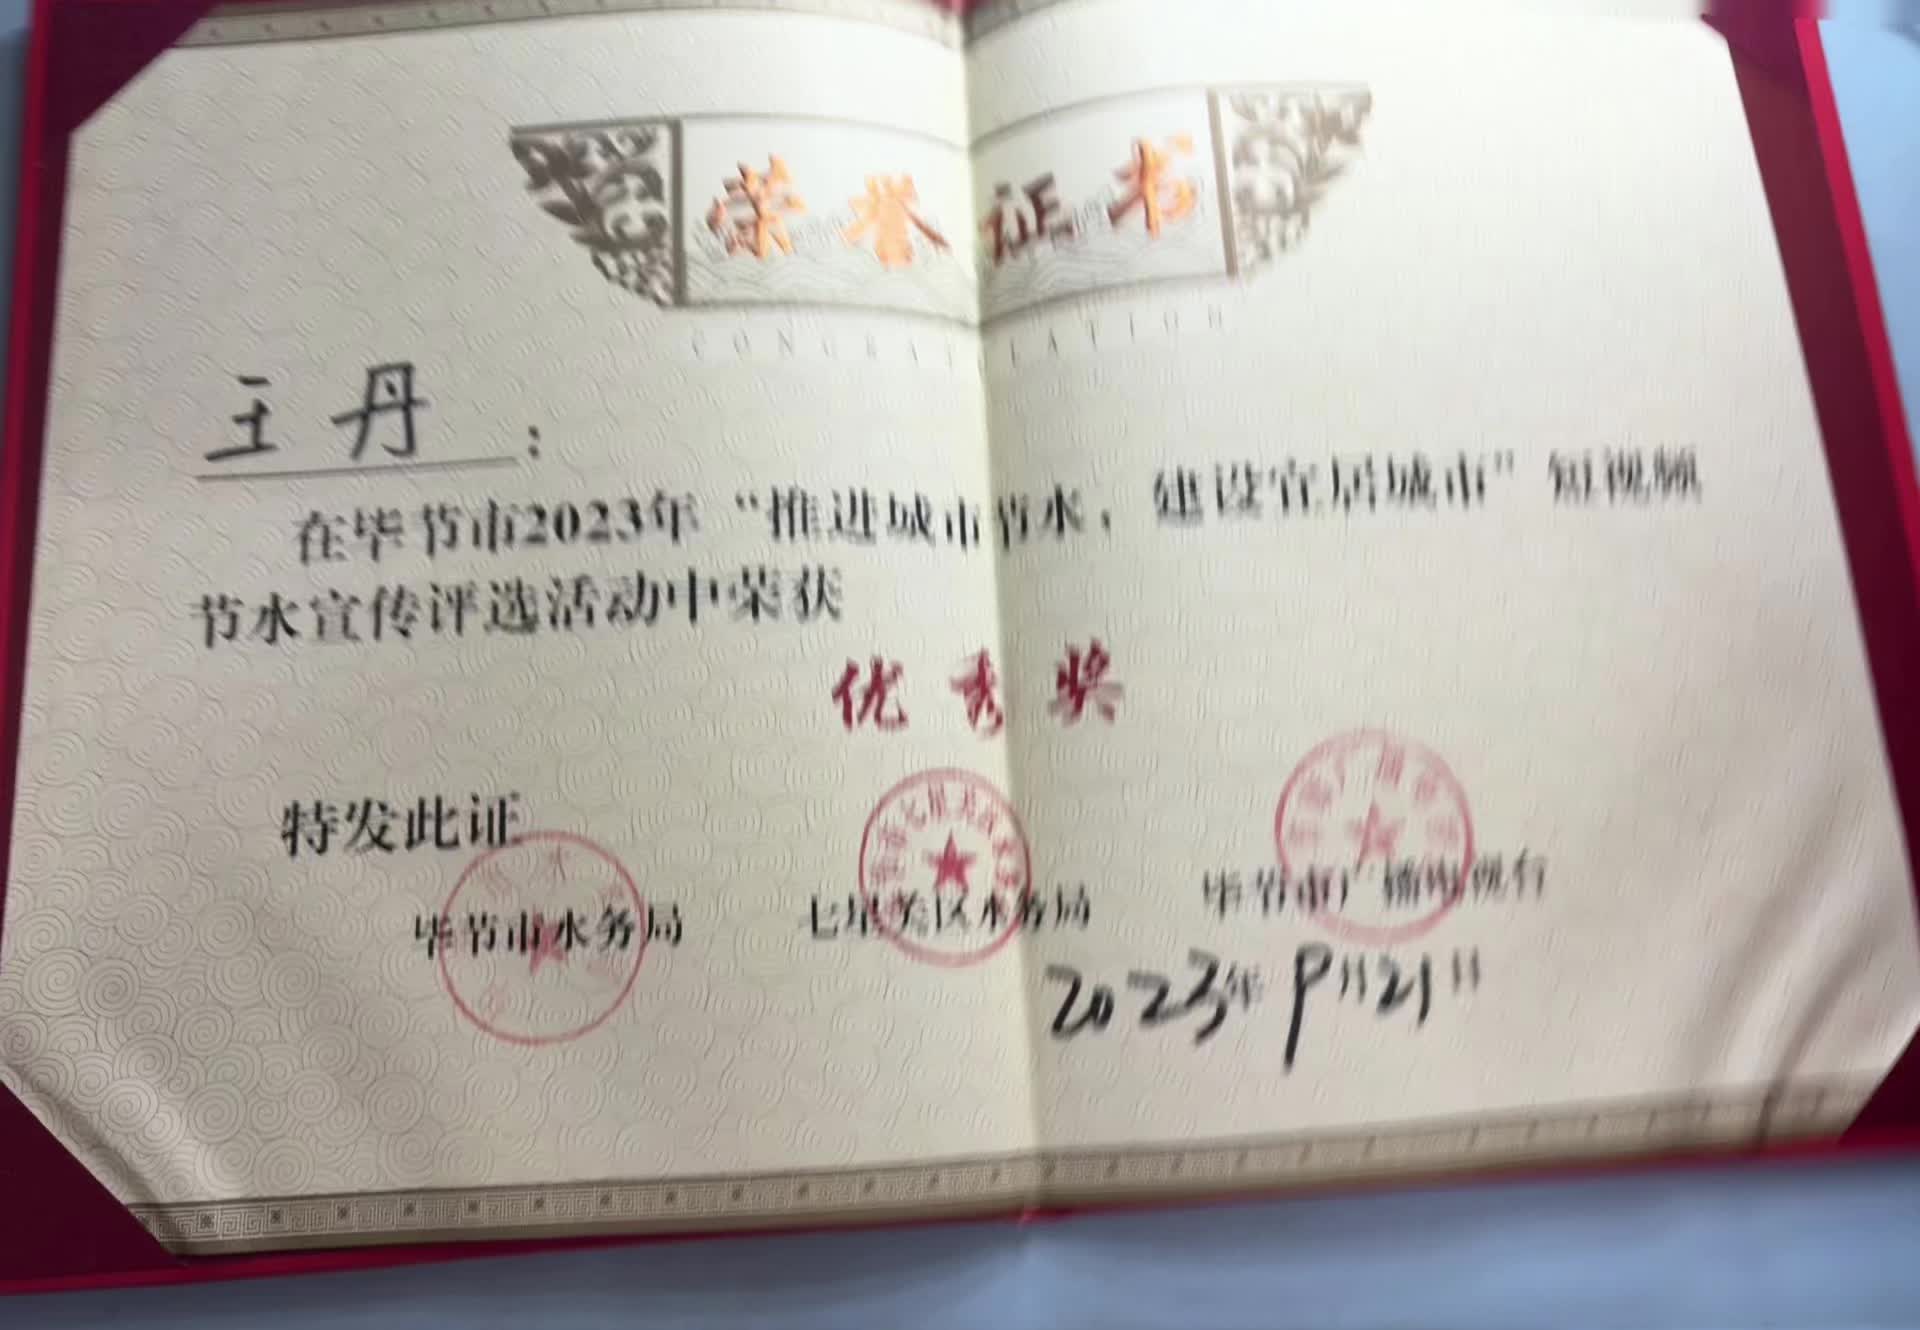 荣誉证书
CONGRATULATION
王丹：
在毕节市2023年“推进城市节水，建设宜居城市”短视频
节水宣传评选活动中荣获
优秀奖
特发此证
毕节市水务局 七星关区水务局 毕节市广播电视台
2023年9月21日